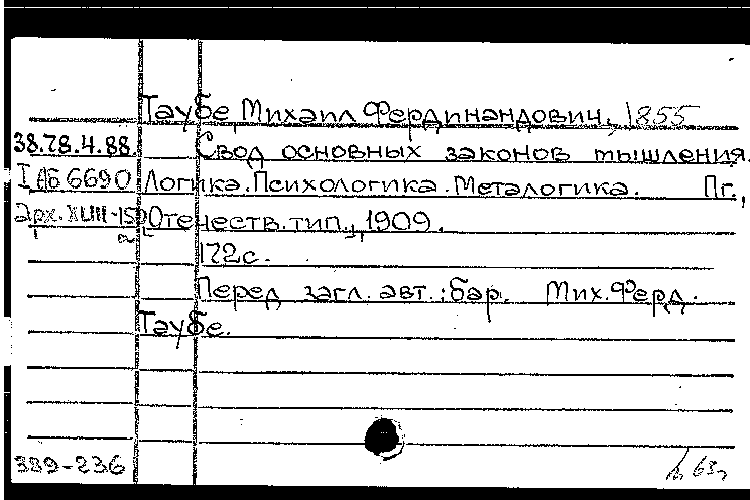 Таубе, Михаил Фердинандович, 1855
38.78.4.88. Свод основных законов мышления.
I АБ 6690 Логика. Психологика. Металогика. Пг.,
Арх. XLIII-15 Отечеств. тип., 1909.
172с.
Перед загл. авт.: бар. Мих. Ферд.
Таубе.
389-236